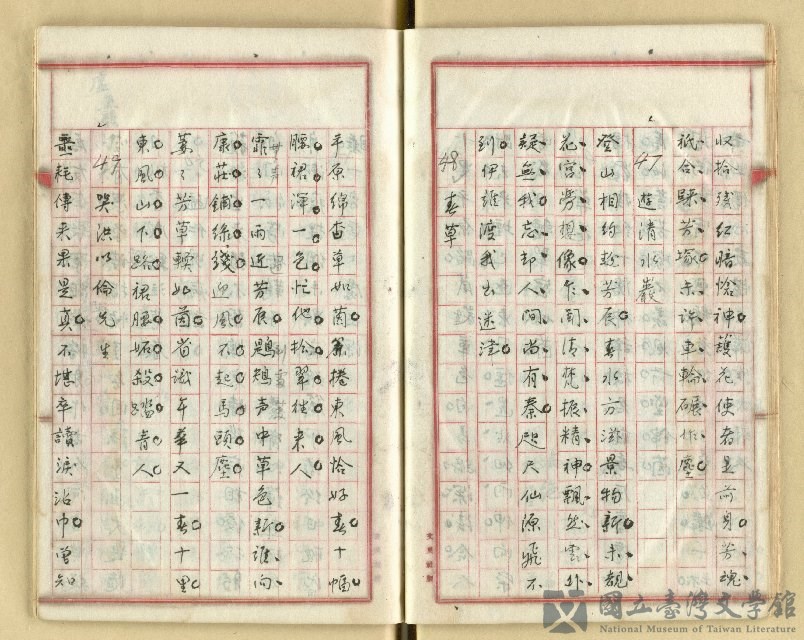 收拾殘紅暗愴神護花使者是前身芳魂
祇合歸芳塚未許車輪碾作塵
47 遊清水巖
登山相約趁芳辰春水方滋景物新未覩
花宮勞想像乍聞清梵振精神飄然雲外
疑無我忘却人間尚有秦咫尺仙源飛不
到伊誰渡我出迷津
48 春草
平原綿杳草如茵簾捲東風恰好春十幅
腰裙渾一色忙他松翠往來人
霏々一雨近芳辰鷓鴣声中草色新誰向
康莊鋪綠綫迎風不起馬頭塵
萋々芳草軟如茵省識年華又一春十里
東風山下路裙腰妬殺踏青人
49 哭洪以倫先生
噩耗傳来果是真不堪卒讀淚沾巾曾知
國立臺灣文學館
National Museum of Taiwan Literature